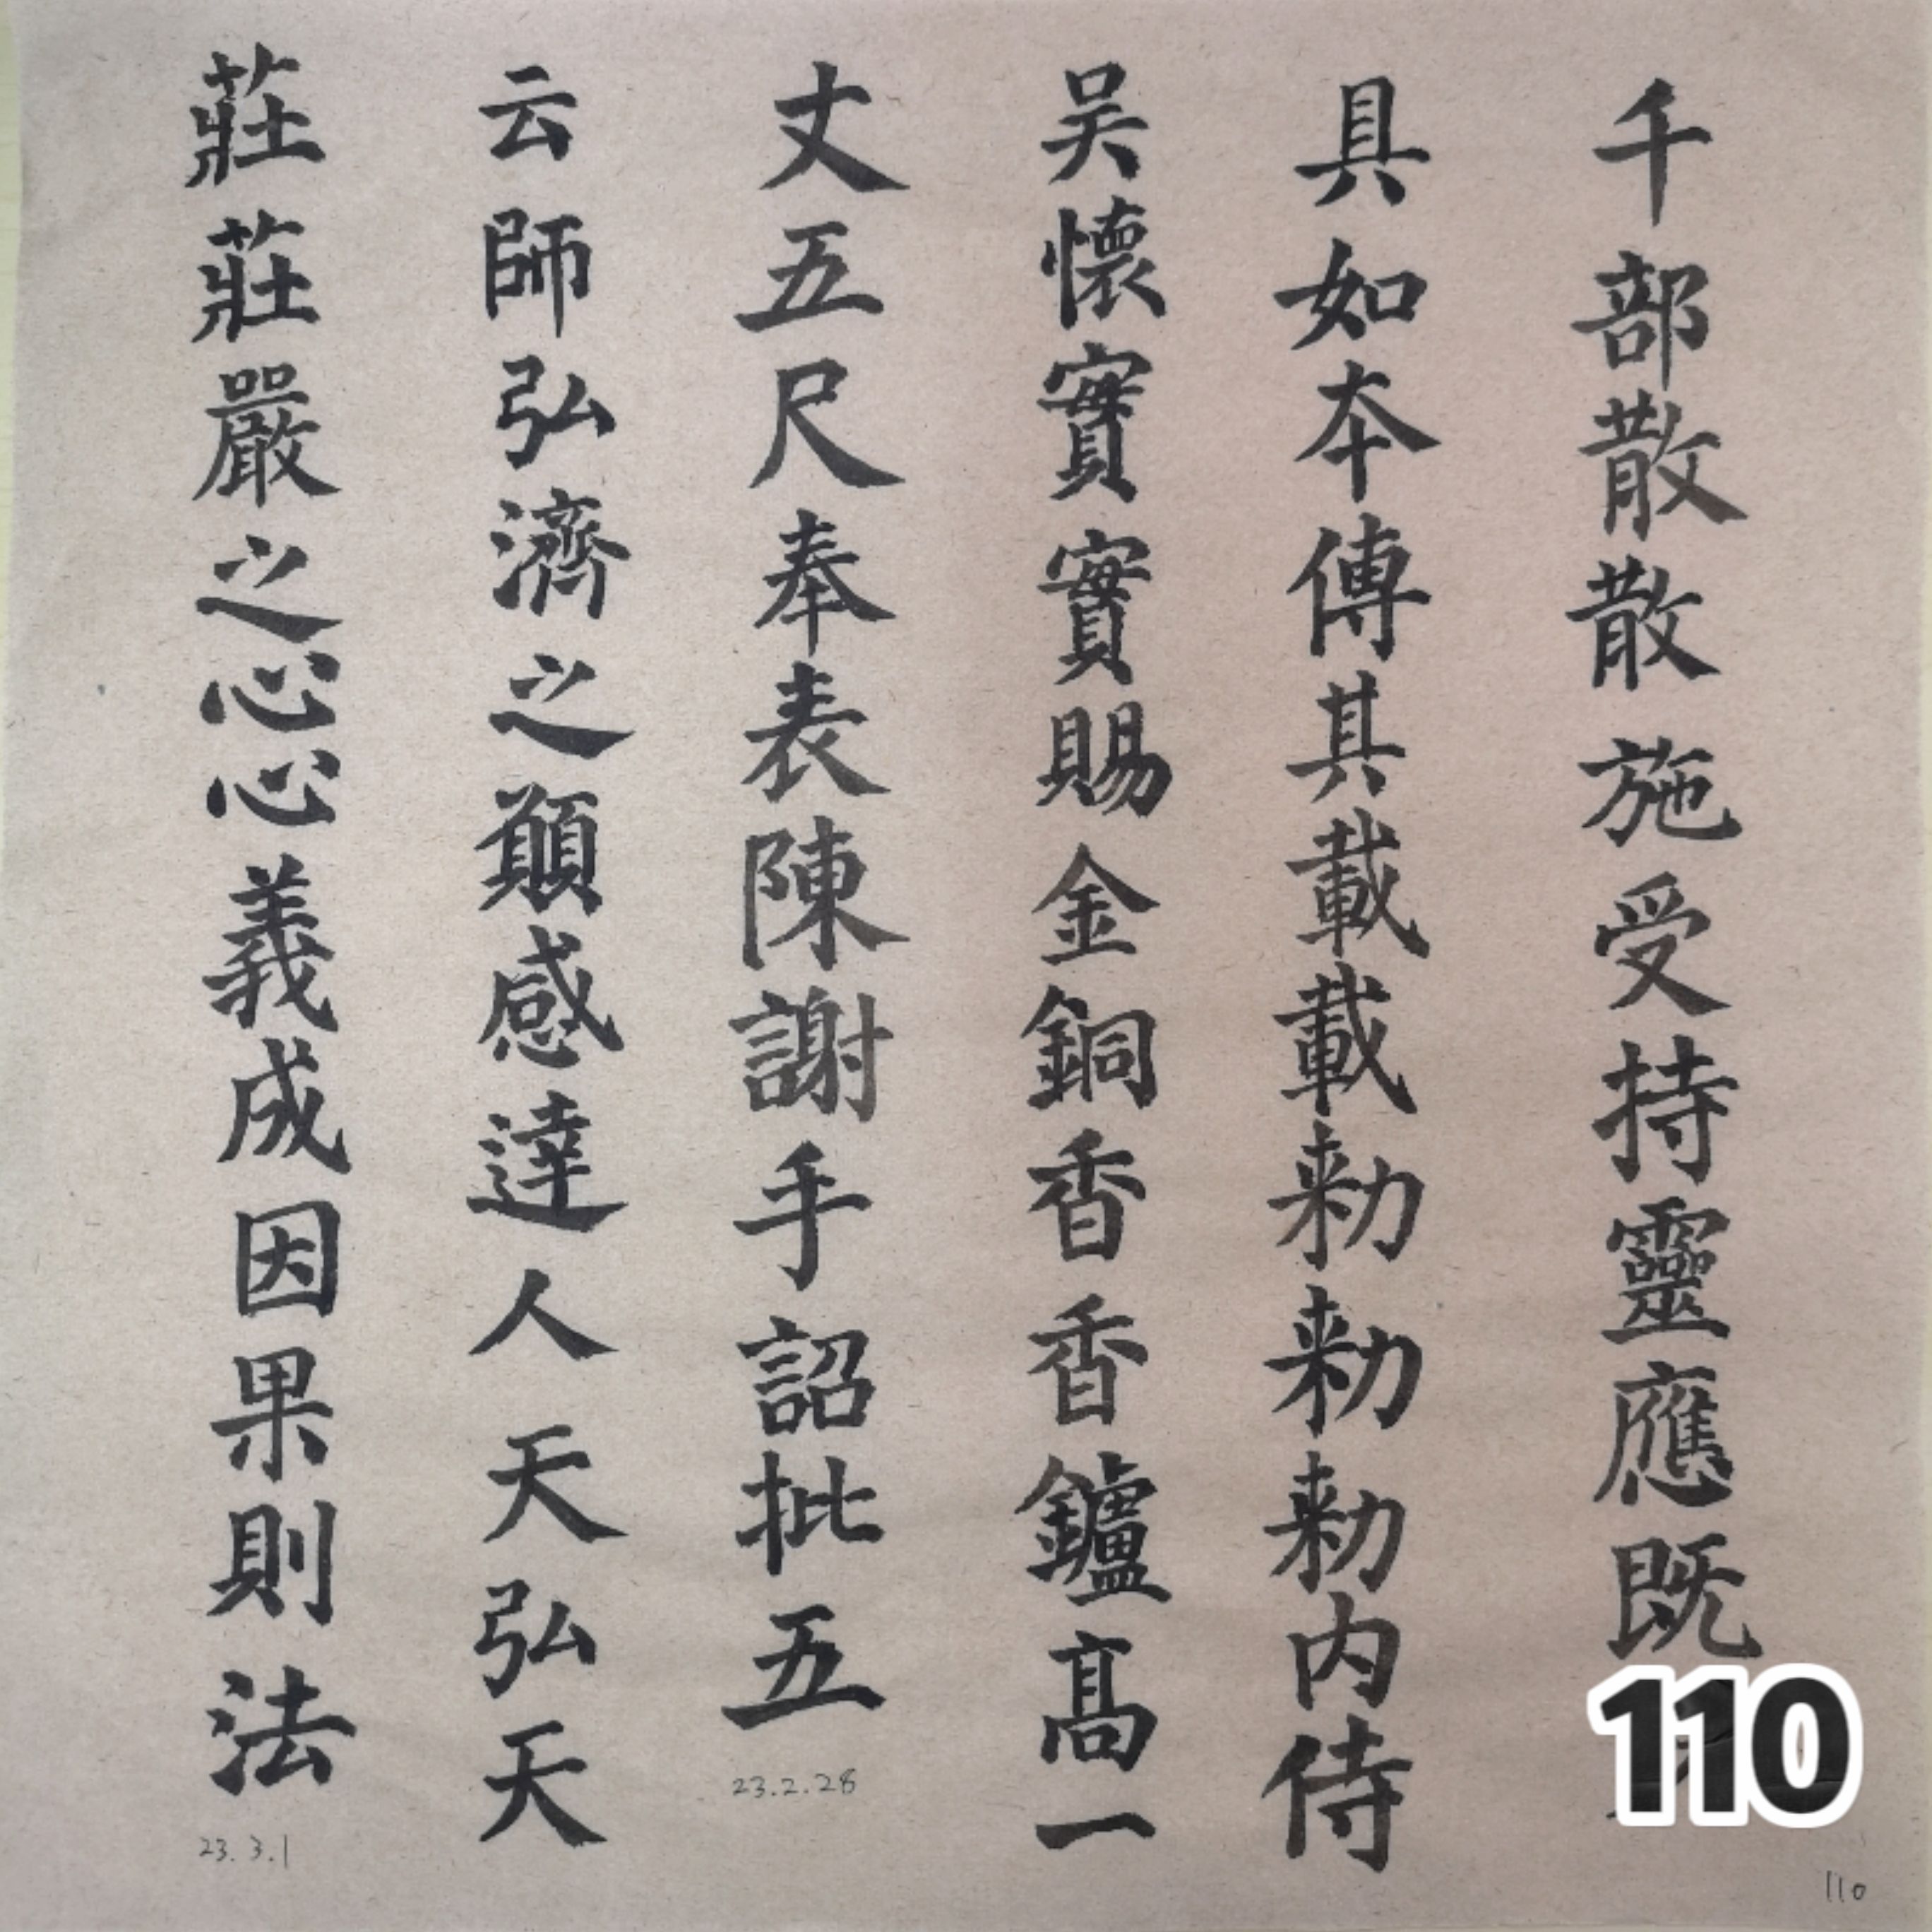 千部散散施受持靈應既
具如夲傳其載載勑勑勑内侍
吴懷實實賜金銅香香鑪高一
丈五尺奉表陳謝手詔批五
23.2.28
云師弘濟之願感達人天弘天
莊莊嚴之心心義成因果則法
23.3.1
110
110